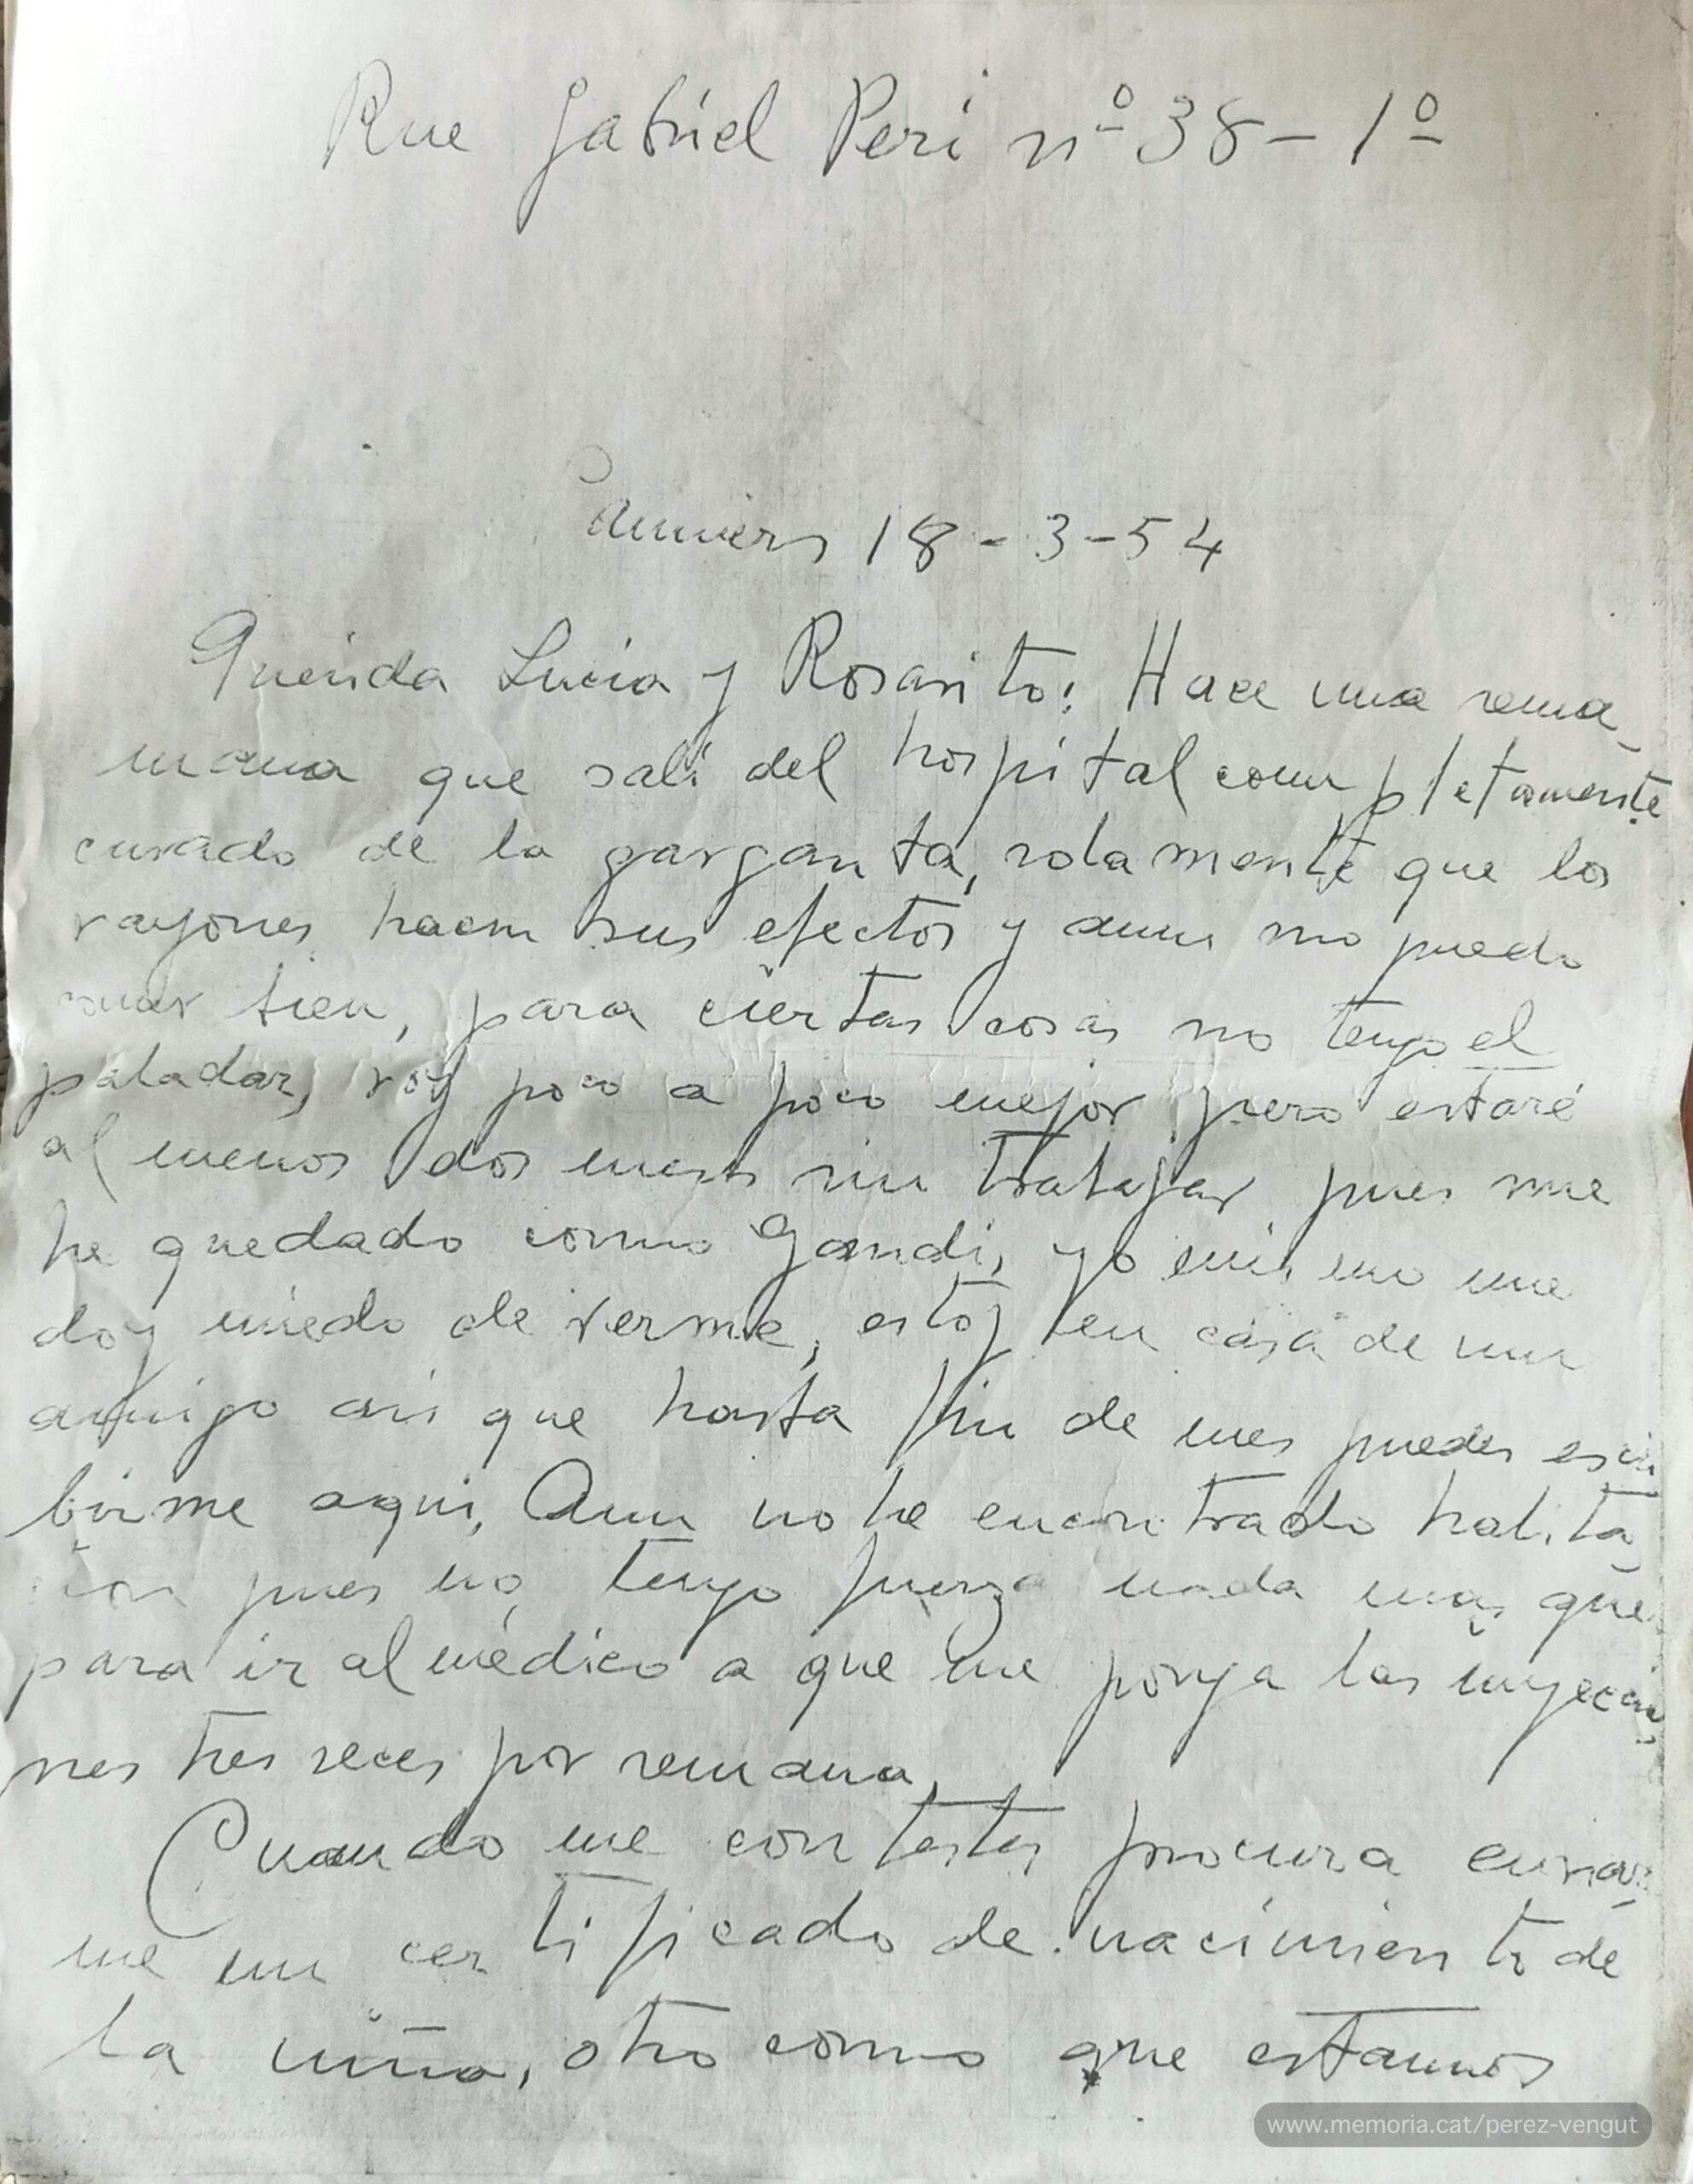 Rue Gabriel Peri nº 38 - 1º
Pamiers 18-3-54
Querida Lucia y Rosarito: Hace una sema_
mana que sali del hospital completamente
curado de la garganta, solamente que los
rayones hacen sus efectos y aun no puedo
comer bien, para ciertas cosas no tengo el
paladar, voy poco a poco mejor pero estaré
al menos dos meses sin trabajar pues me
he quedado como Gandi, yo mismo me
doy miedo de verme, estoy en casa de un
amigo asi que hasta fin de mes puedes escri
birme aqui, Aun no he encontrado habita_
cion pues no tengo fuerza nada mas que
para ir al médico a que me ponga las inyeccio
nes tres veces por semana,
Cuando me contestes procura enviar_
me un certificado de nacimiento de
la niña, otro como que estamos
www.memoria.cat/perez-vengut